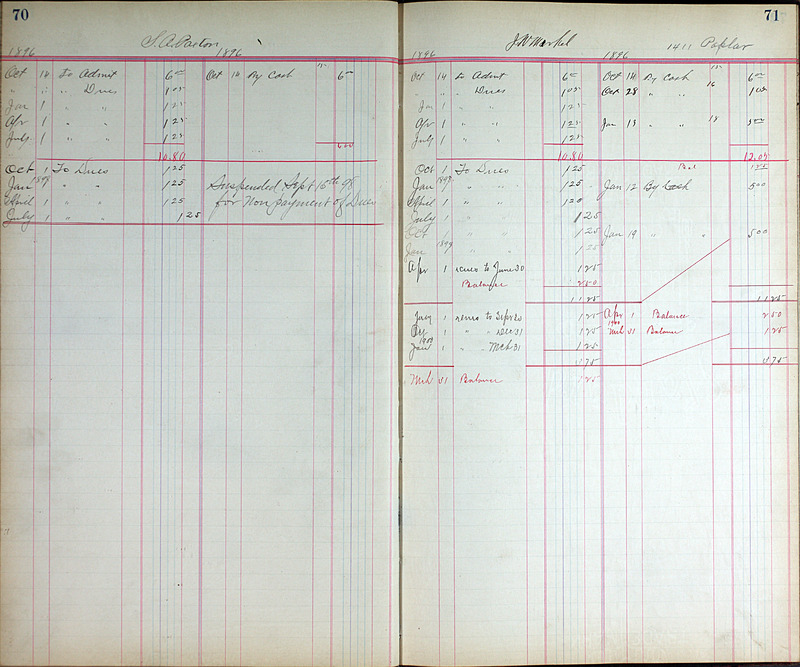 70
S.A. Paxton
1896 1896
Oct 14 To Admit 6 00 Oct 14 By Cash 6 00
" " " Dues 1 05
Jan 1 " " 1 25
Apr 1 " " 1 25
July 1 " " 1 25
10.80
Oct 1 To Dues 1 25
Jan 1898 1 " " 1 25 Suspended Sept 15th 98
April 1 " " 1 25 for Non payment of Dues
July 1 " " 1 25
71
J W Markel 1411 Poplar
1896 1896
Oct 14 to Admt 6 00 Oct 14 By Cash 6 00
" " " Dues 1 05 Oct 28 " " 16 1 05
Jan 1 " " 1 25
Apr 1 " " 1 25 Jan 13 " " 18 5 00
July 1 " " 1 25
10.80 12.05
Oct 1 To Dues 1 25 Bal 1 25
Jan 1 " " 1 25 Jan 12 By Cash 5 00
April 1 " " 1 20
July 1 " " 1 25
Oct 1 " " 1 25 Jan 19 " " 5 00
Jan 1899 " " 1 25
Apr 1 to June 30 1 25
Balance 2 50
11 25 11 25
1 to Sept 30 1 25 Apr 1 Balance 2 50
1 " " Dec 31 1 25 Mch 31 Balance 1 25
Jan 1 " " Mch 31 1 25
3 75 3 75
Mch 31 Balance 1 25